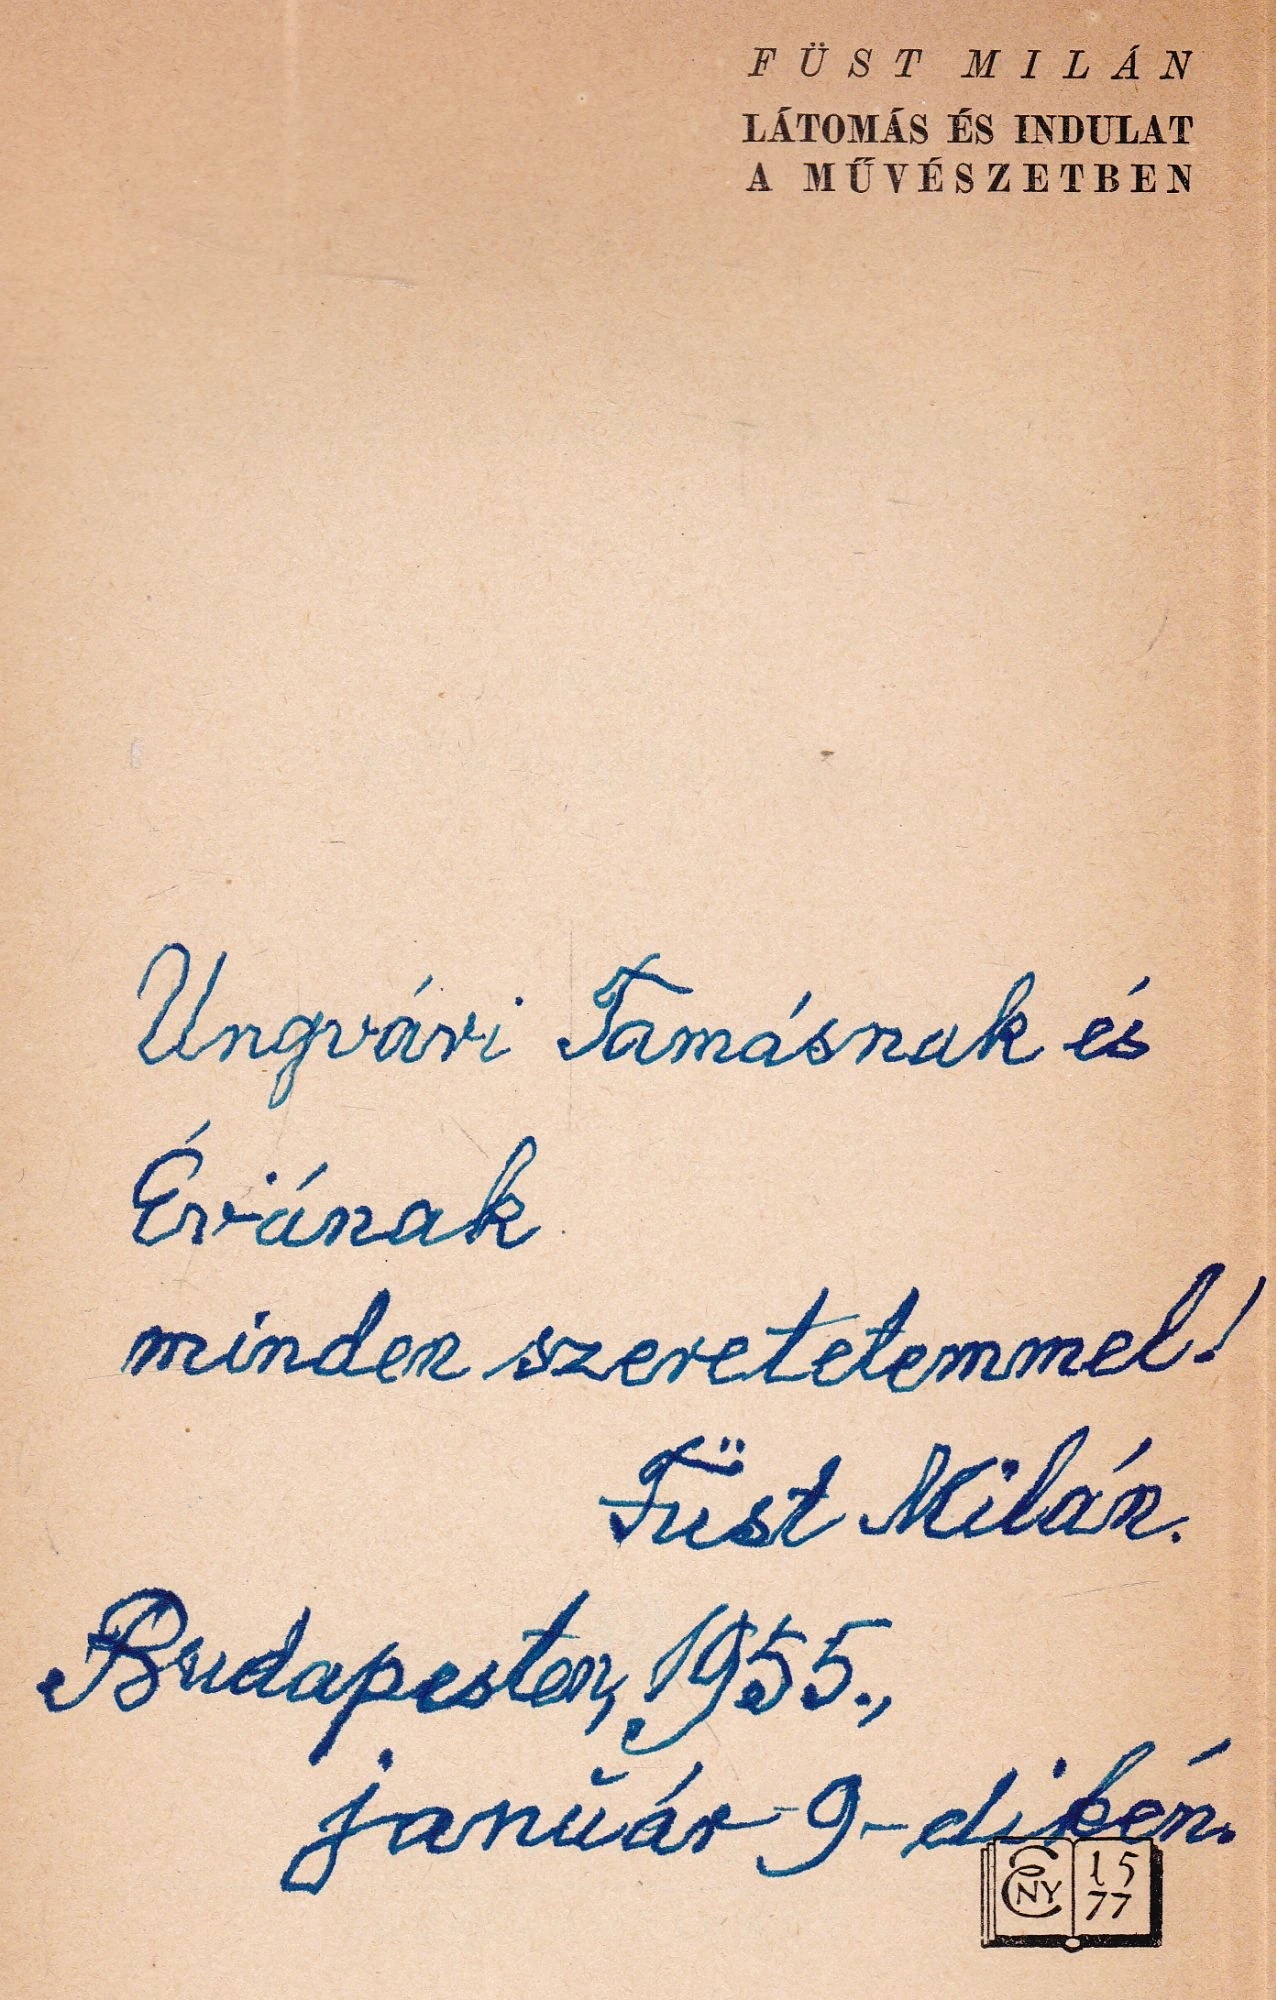 FÜST MILÁN
LÁTOMÁS ÉS INDULAT
A MŰVÉSZETBEN
Ungvári Tamásnak és
Évának
minden szeretetemmel!
Füst Milán.
Budapesten, 1955.,
január 9-dikén.
ENY 15
77